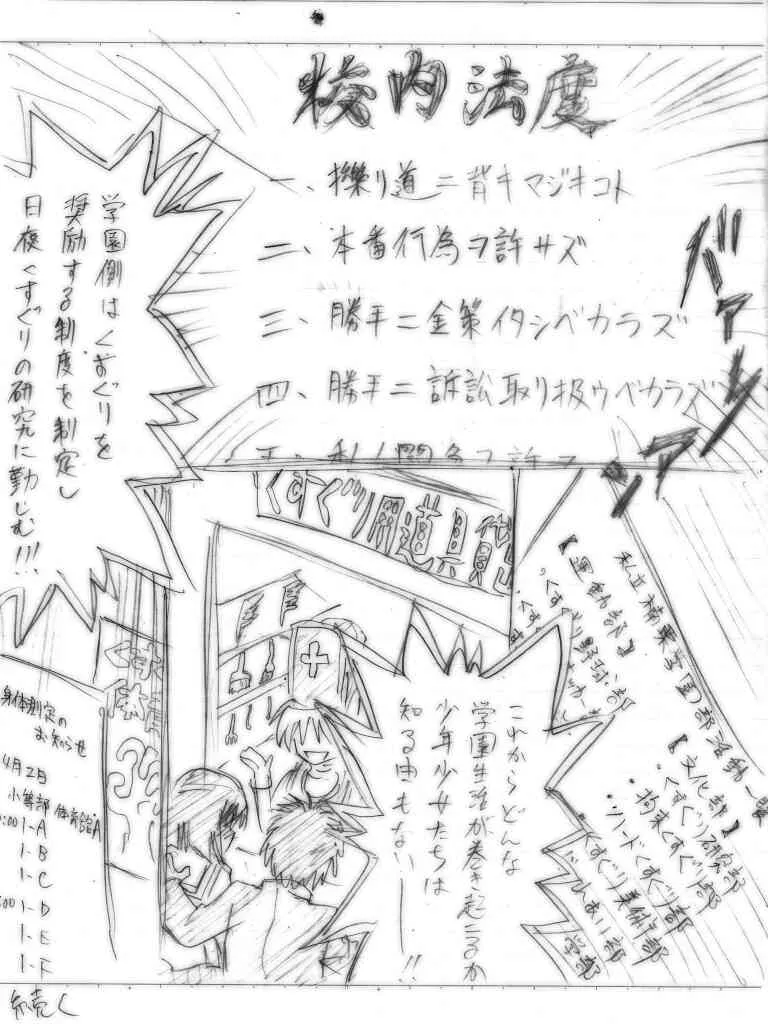 校内法度
一、擽り道ニ背キマジキコト
二、本番行為ヲ許サズ
三、勝手ニ金策イタシベカラズ
四、勝手ニ訴訟取リ扱ウベカラズ
バァァァン
学園側はくすぐりを
奨励する制度を制定し
日夜くすぐりの研究に勤しむ!!!
くすぐり用道具
私立擽栗学園部活動一覧
【運動部】
・くすぐり野球部
【文化部】
・くすぐり研究部
・拘束くすぐり部
・ソフトくすぐり部
くすぐり美術部
これからどんな
学園生活が巻き起こるか
少年少女たちは
知る由もない――!!
身体測定の
お知らせ
4月2日
小等部 体育館A
1-A
1-B
1-C
1-D
1-E
1-F
続く